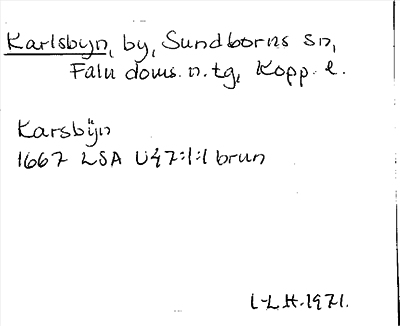 Karlsbyn, by, Sundborns sn,
Falu doms. n. tg, Kopp. l.
Karsbÿn
1667 LSA U47:1:1 brun
L-L H. 1971.